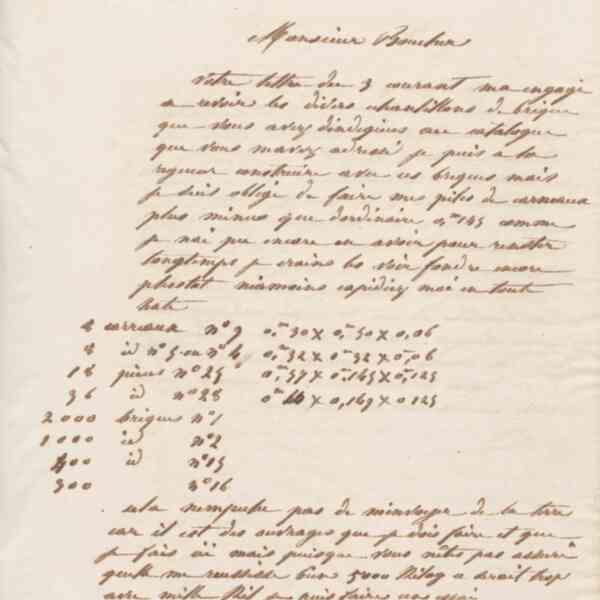 Monsieur Boucher
votre lettre du 3 courant ma engagé
a revoir les divers echantillons de brique
que vous avez dindiqués au catalogue
que vous mavez adressé je puis a la
rigueur construire avec ces briques mais
je suis obligé de faire mes piles de carneaux
plus minces que dordinaire 0,m145 comme
je nai pu encore en avoir pour resister
longtemps je crains les voir fondre encore
plustot niamoins expidiez moi en toute
hate
8 carreaux n° 9 0,m30 x 0,m30 x 0,06
8 id n° 5 ou n° 4 0,m32 x 0m32 x 0m,06
18 pieces n° 25 0,m37 x 0,165 x 0m,125
36 id n° 28 x 0,169 x 0 125
2000 briques n° 1
1000 id n° 2
400 id n° 15
300 n° 16
cela nempeche pas de menvoyer de la terre
car il est des ouvrages que je dois faire et que
je fais ici mais puisque vous nêtes pas assuré
quelle me reussisse bien 5000 Kilog serait trop
avec mille Kil je puis faire un essai